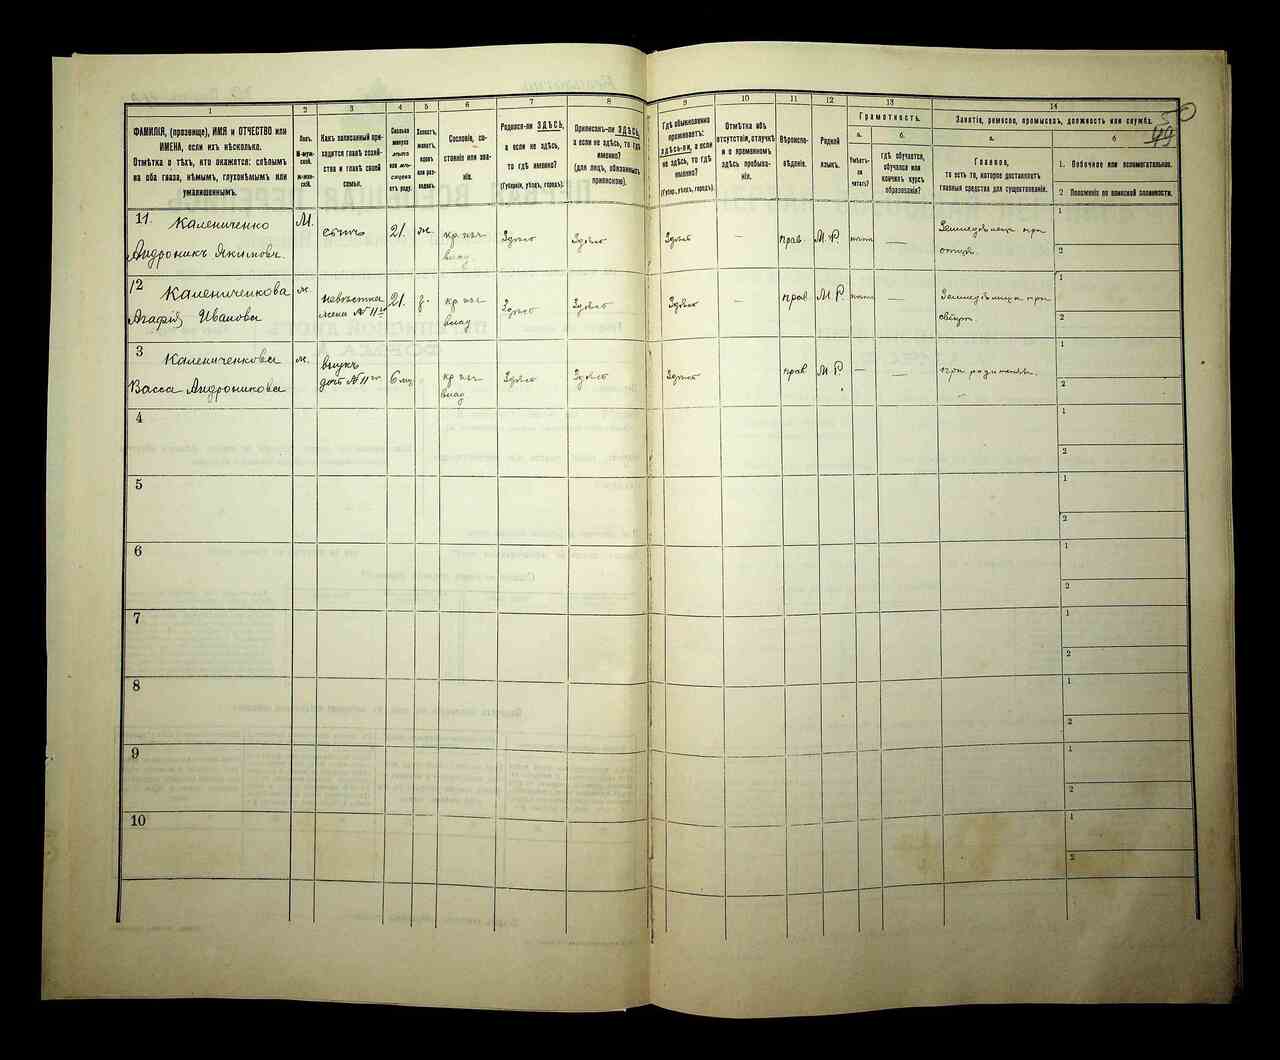 49
1
2
3
4
5
6
7
8
9
10
11
12
13
14
ФАМИЛІЯ, (прозвище), ИМЯ и ОТЧЕСТВО или
ИМЕНА, если ихъ нѣсколько.
Отмѣтка о тѣхъ, кто окажется: слѣпымъ
на оба глаза, нѣмымъ, глухонѣмымъ или
умалишеннымъ.
Полъ.
М-муж-
ской.
Ж-жен-
скій.
Какъ записанный при-
ходится главѣ хозяй-
ства и главѣ своей
семьи.
Сколько
минуло
лѣтъ
или мѣ-
сяцевъ
отъ роду.
Холостъ,
женатъ,
вдовъ
или раз-
веденъ.
Сословіе, со-
стояніе или зва-
ніе.
Родился-ли ЗДѢСЬ,
а если не здѣсь,
то гдѣ именно?
(Губернія, уѣздъ, городъ).
Приписанъ-ли ЗДѢСЬ,
а если не здѣсь, то гдѣ
именно?
(для лицъ, обязанныхъ
припискою).
Гдѣ обыкновенно
проживаетъ:
здѣсь-ли, а если
не здѣсь, то гдѣ
именно?
(Губер., уѣздъ, городъ).
Отмѣтка объ
отсутствіи, отлучкѣ
и о временномъ
здѣсь пребыва-
ніи.
Вѣроиспо-
вѣданіе.
Родной
языкъ.
Грамотность.
а.
б.
Умѣетъ-
ли
читать?
гдѣ обучается,
обучался или
кончилъ курсъ
образованія?
Занятіе, ремесло, промыселъ, должность или служба.
а.
б
Главное,
то есть то, которое доставляетъ
главныя средства для существованія.
1. Побочное или вспомогательное.
2 Положеніе по воинской повинности.
11. Калениченко
Андроникъ Якимовъ.
М.
сынъ
21.
ж.
кр
влад.
Здѣсь
Здѣсь
Здѣсь
—
прав.
М. Р.
—
при
отцѣ.
1
2
12 Калениченкова
Агафія Иванова
ж.
невѣстка
жена № 11го
21.
з.
кр
влад
Здѣсь
Здѣсь
Здѣсь
—
прав
М. Р.
—
при
1
2
3 Калениченкова
Васса Андроникова
ж.
внука
дочь № 11го
6 м
кр
влад
Здѣсь
Здѣсь
Здѣсь
прав
М. Р.
—
—
при родителяхъ.
1
2
4
1
2
5
1
2
6
1
2
7
1
2
8
1
2
9
1
2
10
1
2